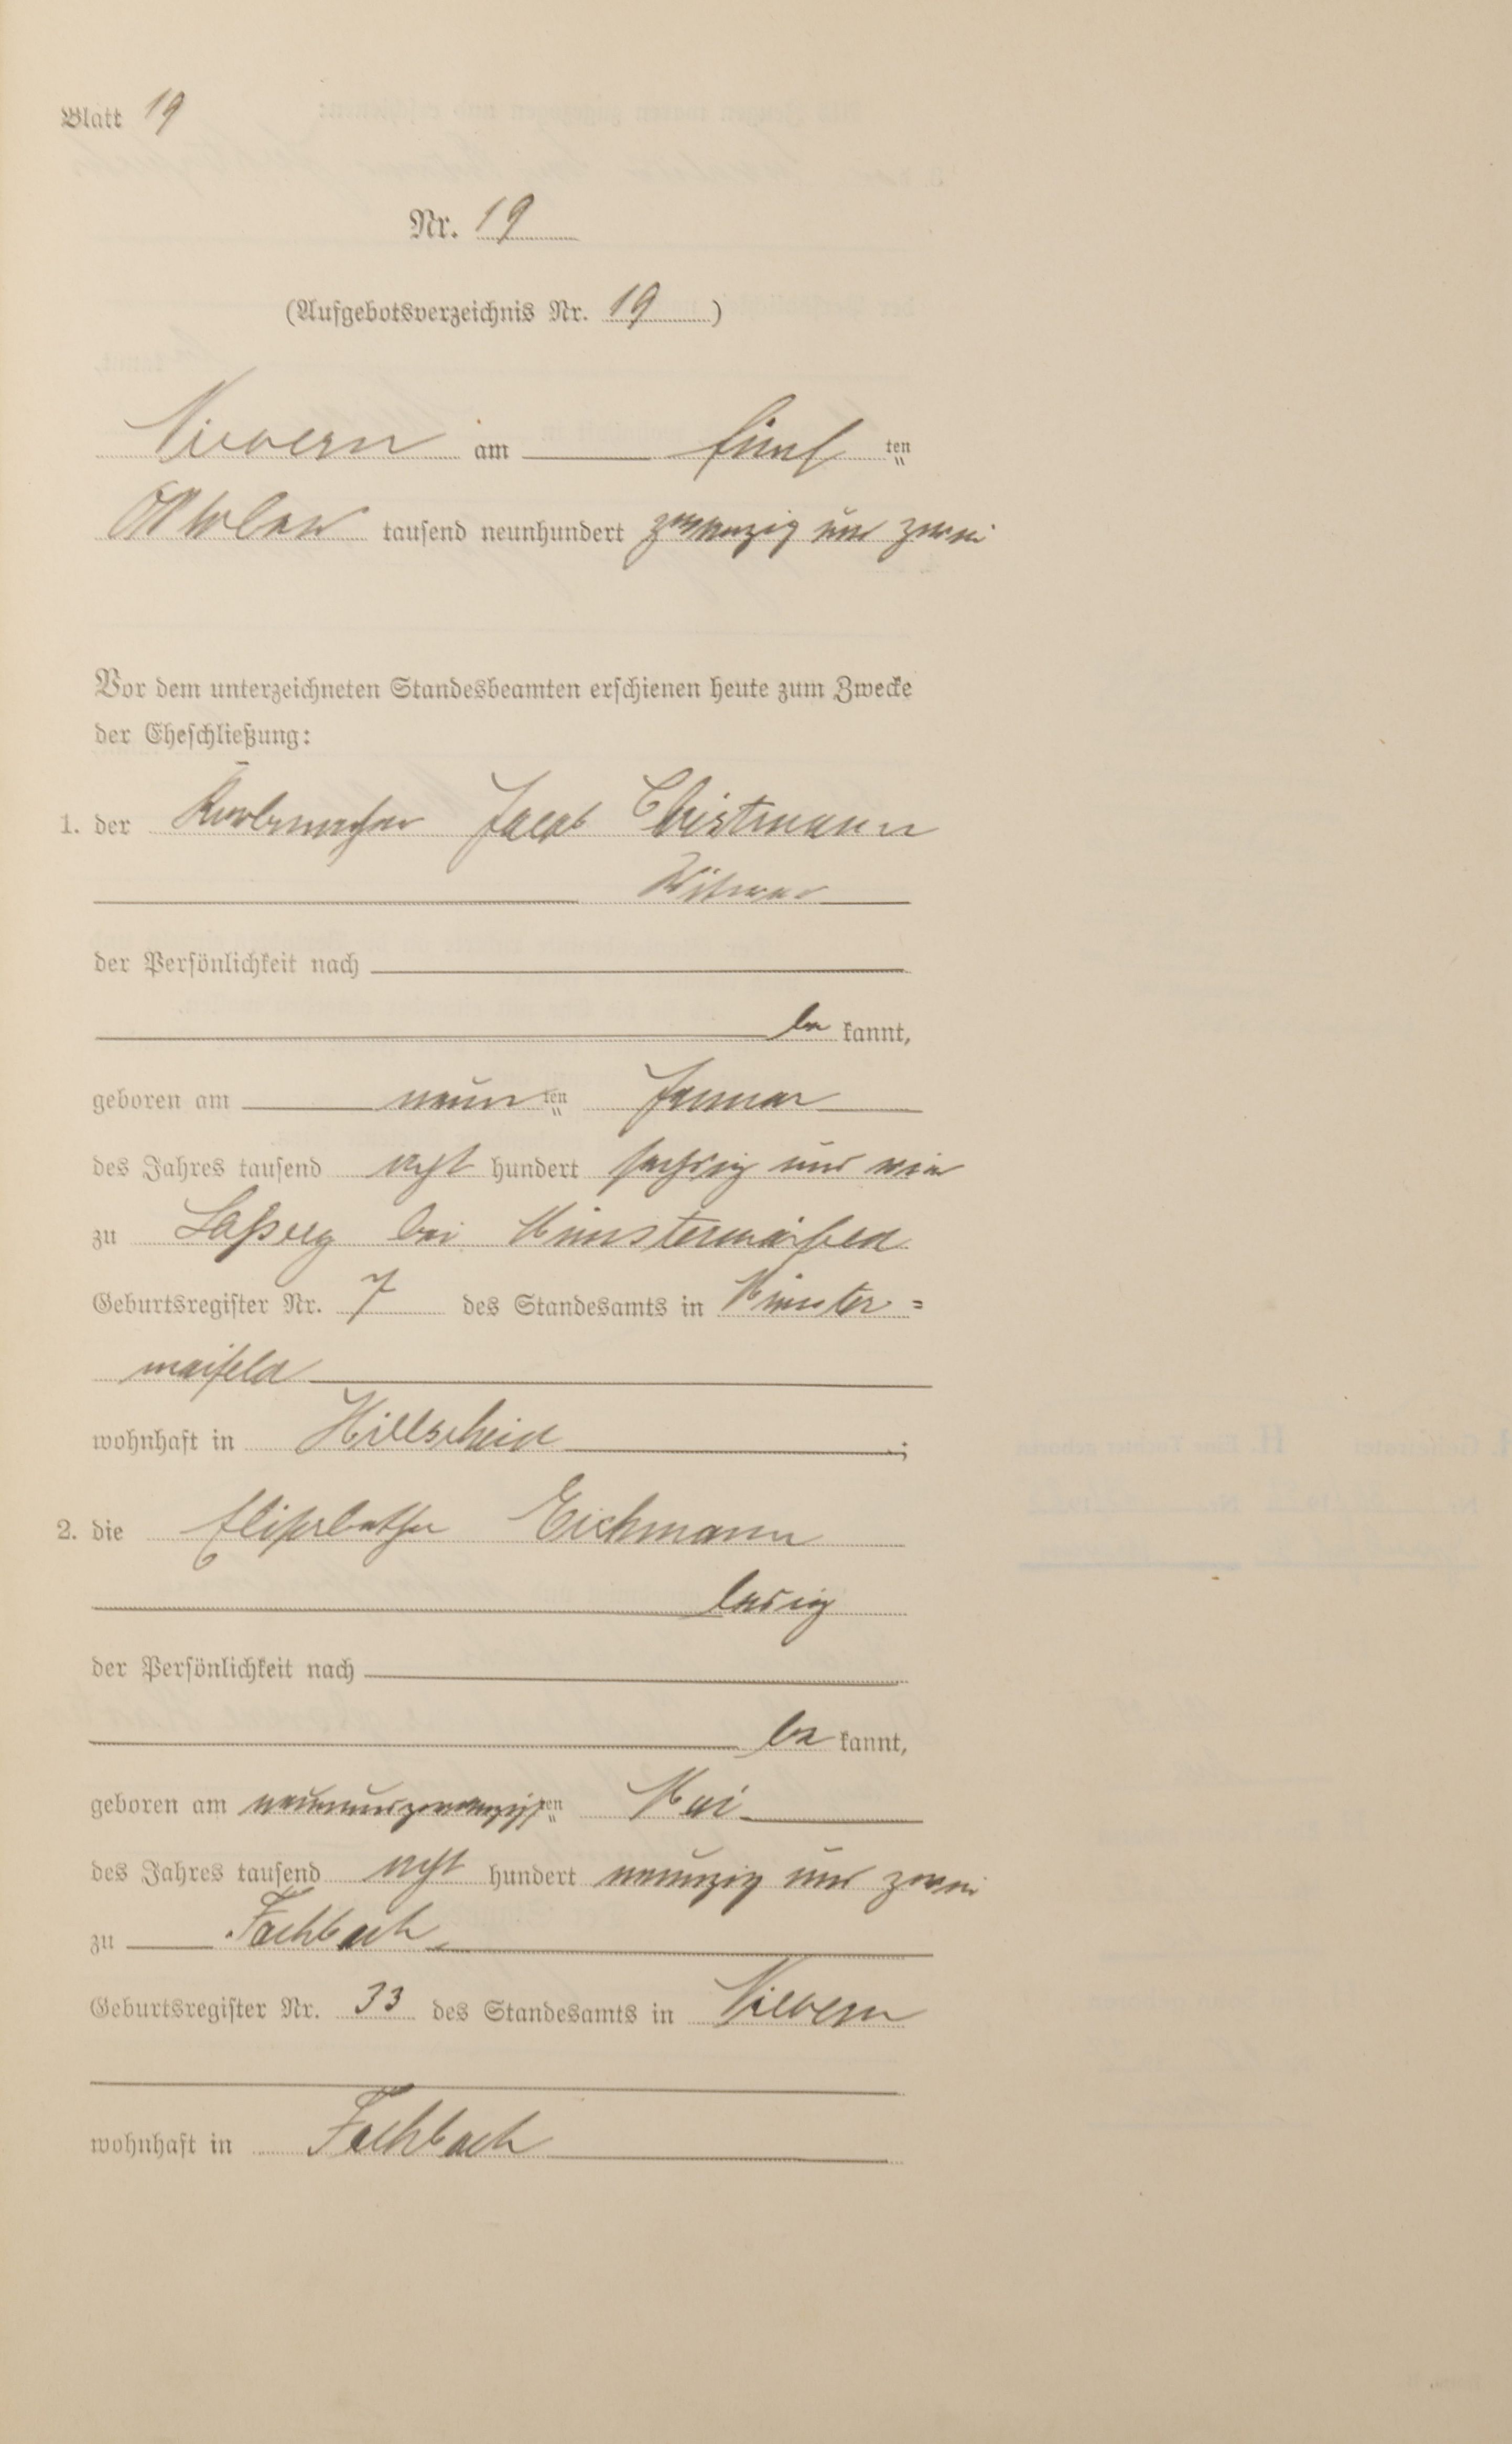 Blatt 19
Nr. 19
(Aufgebotsverzeichnis Nr. 19)
Nievern am fünf ten
Oktober tausend neunhundert zwanzig und zwei
Vor dem unterzeichneten Standesbeamten erschienen heute zum Zwecke
der Eheschließung:
1. der Korbmacher Jacob Christmann
Witwer
der Persönlichkeit nach
be kannt,
geboren am neun ten Januar
des Jahres tausend acht hundert sechzig und vier
zu Lasserg bei Münstermaifeld
Geburtsregister Nr. 7 des Standesamts in Münster=
maifeld
wohnhaft in Hillscheid ;
2. die Elisabetha Eichmann
ledig
der Persönlichkeit nach
be kannt,
geboren am neunundzwanzigsten Mai
des Jahres tausend acht hundert neunzig und zwei
zu Fachbach
Geburtsregister Nr. 33 des Standesamts in Nievern
wohnhaft in Fachbach